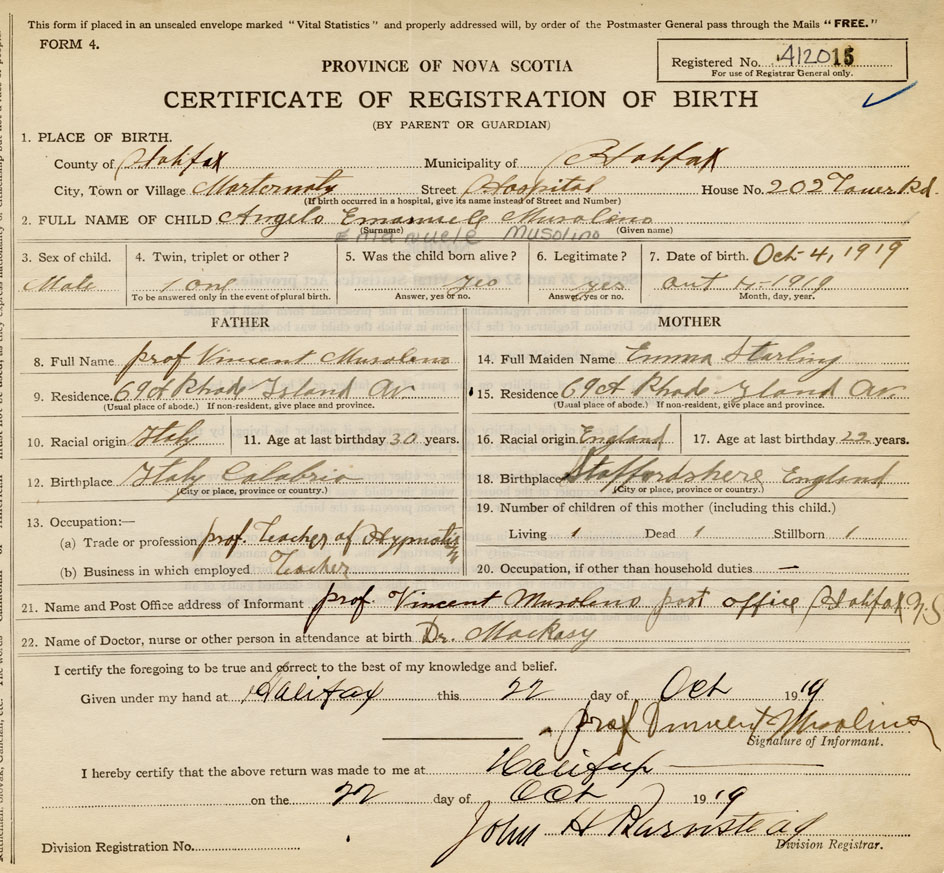 This form if placed in an unsealed envelope marked "Vital Statistics" and properly addressed will, by order of the Postmaster General pass through the Mails "FREE."
FORM 4.
Registered No. 412015
For use of Registrar General only.
PROVINCE OF NOVA SCOTIA
CERTIFICATE OF REGISTRATION OF BIRTH
(BY PARENT OR GUARDIAN)
1. PLACE OF BIRTH.
County of Halifax Municipality of Halifax
City, Town or Village Street Hospital House No. 202 Tower Rd.
(If birth occurred in a hospital, give its name instead of Street and Number)
2. FULL NAME OF CHILD Angelo Emanuele Musolino
(Surname) (Given name)
Emanuele Musolino
3. Sex of child. 4. Twin, triplet or other? 5. Was the child born alive? 6. Legitimate? 7. Date of birth. Oct-4, 1919
Male 1 one yes yes 4-1919
To be answered only in the event of plural birth. Answer, yes or no. Answer, yes or no. Month, day, year.
FATHER MOTHER
8. Full Name prof Vincent Musolino 14. Full Maiden Name Emma Starling
9. Residence. 69 Rhode Island Av 15. Residence 69 Rhode Island Av.
(Usual place of abode.) If non-resident, give place and province. (Usual place of abode.) If non-resident, give place and province.
10. Racial origin Italy 11. Age at last birthday 30 years. 16. Racial origin England 17. Age at last birthday 22 years.
12. Birthplace Italy Calabria 18. Birthplace Staffordshere England
(City or place, province or country.) (City or place, province or country.)
13. Occupation:— 19. Number of children of this mother (including this child.)
(a) Trade or profession prof. Teacher of Living 1 Dead 1 Stillborn 1
(b) Business in which employed Teacher 20. Occupation, if other than household duties. —
21. Name and Post Office address of Informant prof Vincent Musolino post office Halifax N S
22. Name of Doctor, nurse or other person in attendance at birth Dr.
I certify the foregoing to be true and correct to the best of my knowledge and belief.
Given under my hand at Halifax this 22 day of Oct 1919
prof Vincent Musolino
Signature of Informant.
I hereby certify that the above return was made to me at Halifax
on the 22 day of Oct 1919
John H Barnstead
Division Registration No. Division Registrar.